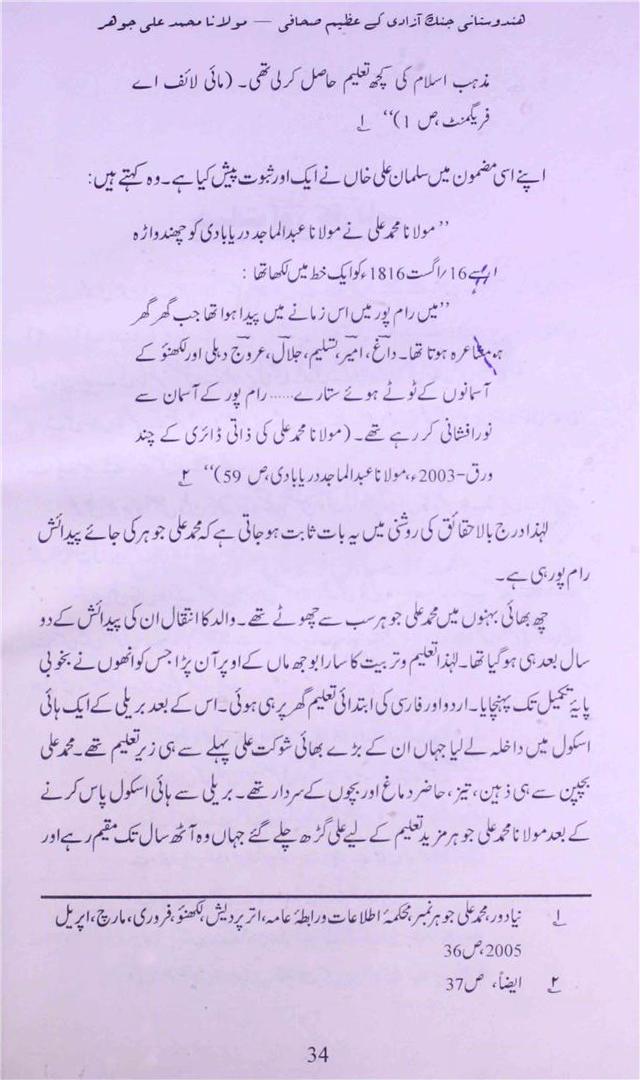 ہندوستانی جنگ آزادی کے عظیم صحافی — مولانا محمد علی جوہر
مذہب اسلام کی کچھ تعلیم حاصل کرلی تھی۔ (مائی لائف اے
فریگمنٹ، ص 1)‘‘ ۱
اپنے اسی مضمون میں سلمان علی خاں نے ایک اور ثبوت پیش کیا ہے۔ وہ کہتے ہیں:
’’مولانا محمد علی نے مولانا عبدالماجد دریابادی کو چھندواڑہ
سے 16/اگست 1816ء کو ایک خط میں لکھا تھا:
’’میں رام پور میں اس زمانے میں پیدا ہوا تھا جب گھر گھر
مشاعرہ ہوتا تھا۔ داغؔ، امیرؔ، تسلیم، جلالؔ، عروجؔ دہلی اور لکھنؤ کے
آسمانوں کے ٹوٹے ہوئے ستارے...... رام پور کے آسمان سے
نورافشانی کر رہے تھے۔ (مولانا محمد علی کی ذاتی ڈائری کے چند
ورق-2003ء، مولانا عبدالماجد دریابادی، ص 59)‘‘ ۲
لہٰذا درج بالا حقائق کی روشنی میں یہ بات ثابت ہوجاتی ہے کہ محمد علی جوہر کی جائے پیدائش
رام پور ہی ہے۔
چھ بھائی بہنوں میں محمد علی جوہر سب سے چھوٹے تھے۔ والد کا انتقال ان کی پیدائش کے دو
سال بعد ہی ہوگیا تھا۔ لہٰذا تعلیم و تربیت کا سارا بوجھ ماں کے اوپر آن پڑا جس کو انھوں نے بخوبی
پایۂ تکمیل تک پہنچایا۔ اردو اور فارسی کی ابتدائی تعلیم گھر پر ہی ہوئی۔ اس کے بعد بریلی کے ایک ہائی
اسکول میں داخلہ لے لیا جہاں ان کے بڑے بھائی شوکت علی پہلے سے ہی زیر تعلیم تھے۔ محمد علی
بچپن سے ہی ذہین، تیز، حاضر دماغ اور بچوں کے سردار تھے۔ بریلی سے ہائی اسکول پاس کرنے
کے بعد مولانا محمد علی جوہر مزید تعلیم کے لیے علی گڑھ چلے گئے جہاں وہ آٹھ سال تک مقیم رہے اور
۱ نیا دور، محمد علی جوہر نمبر، محکمۂ اطلاعات و رابطۂ عامہ، اتر پردیش، لکھنؤ، فروری، مارچ، اپریل
2005، ص36
۲ ایضاً، ص37
34